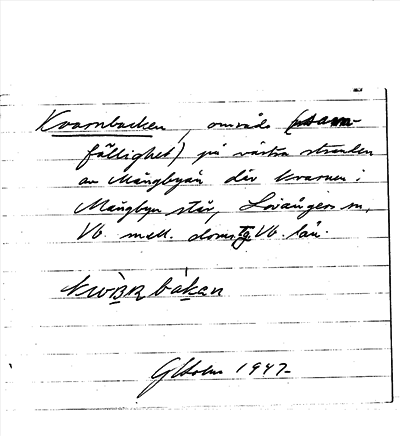 Kvarnbacken, område (sam-
fällighet) på västra stranden
av Mångbyån där kvarnen i
Mångbyn står, Lövångers sn,
Vb. mell. doms tg. Vb. län.
bakan
G Holm 1947-